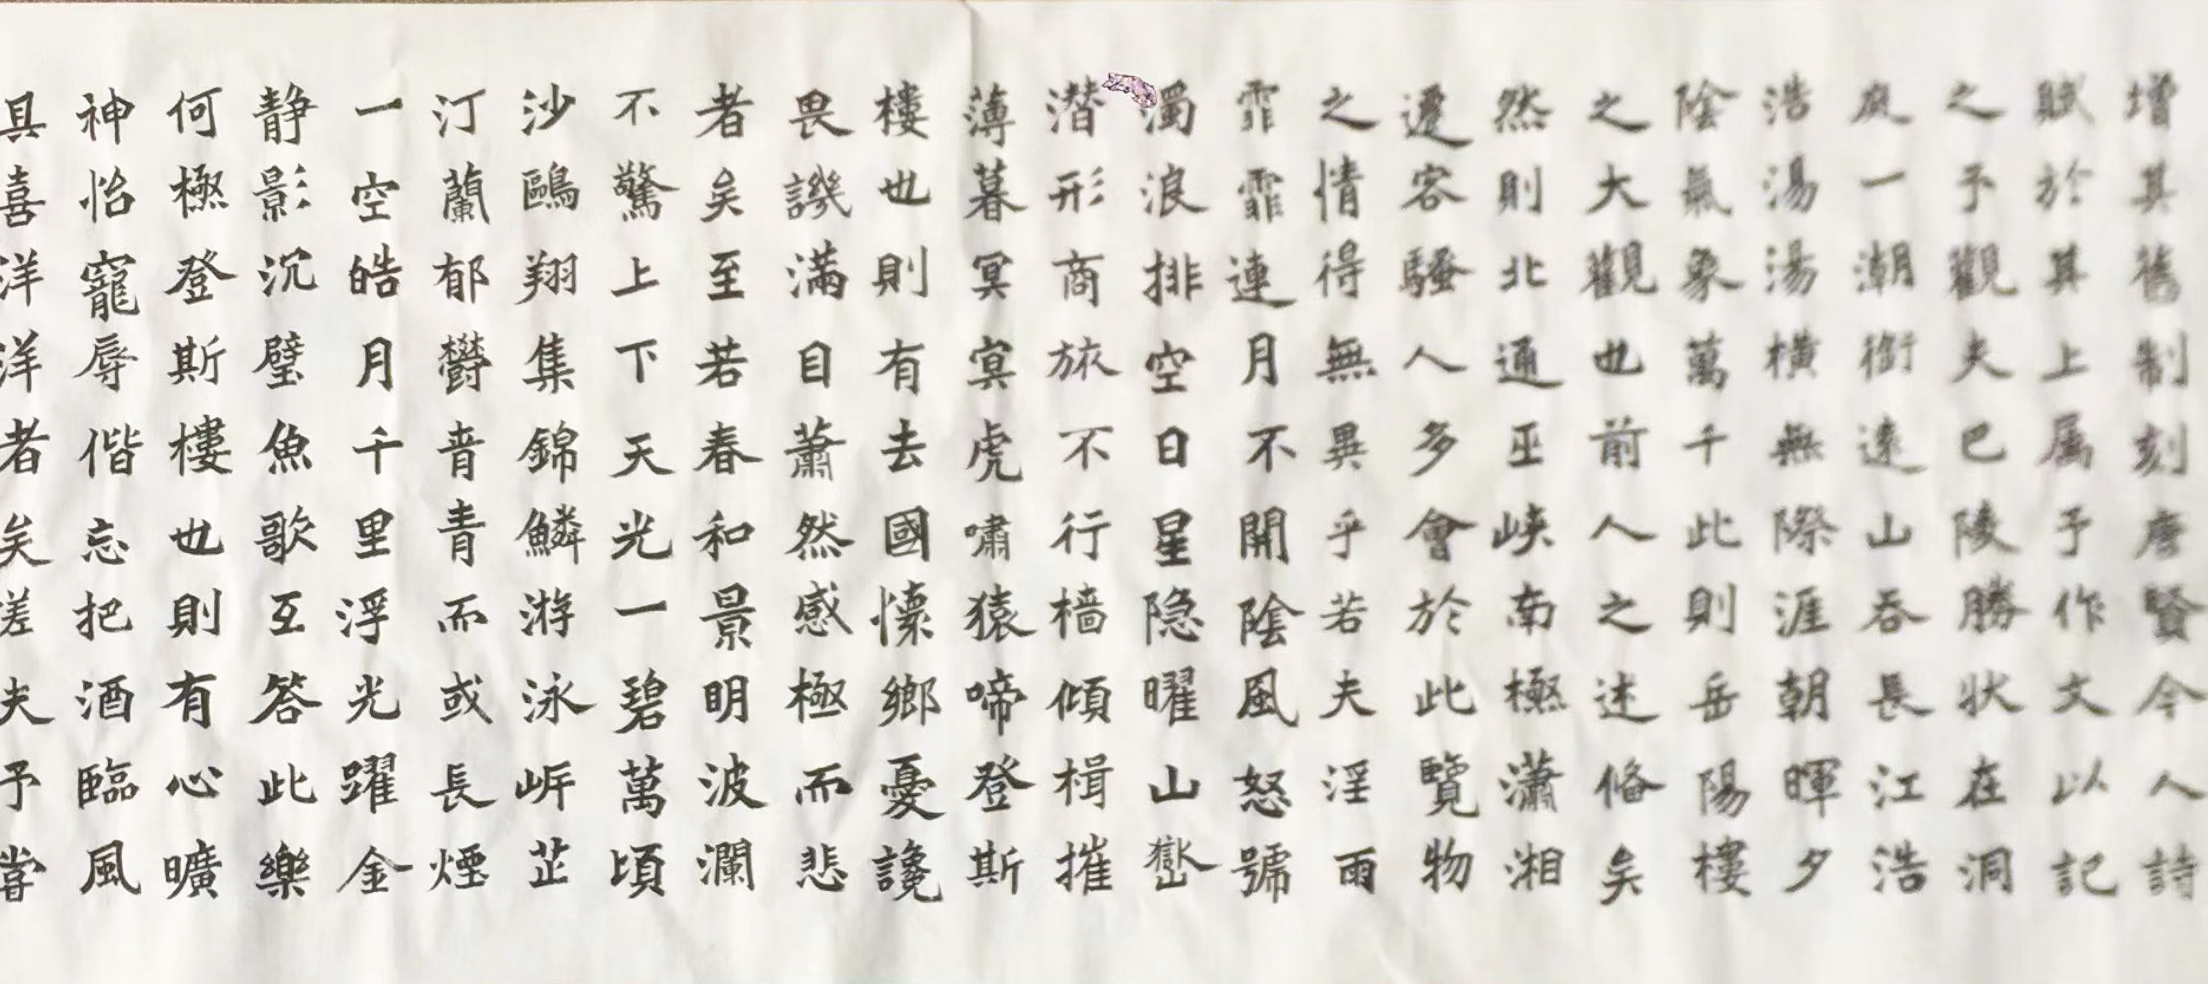 增其舊制刻唐賢今人詩
賦於其上属予作文以記
之予觀夫巴陵勝状在洞
庭一潮銜遠山吞長江浩
浩湯湯横無際涯朝暉夕
陰氣象萬千此則岳陽樓
之大觀也前人之述俻矣
然則北通巫峡南極瀟湘
遷客騷人多會於此覽物
之情得無異乎若夫淫雨
霏霏連月不開陰風怒號
濁浪排空日星隐曜山嶽
潜形商旅不行樯傾楫摧
薄暮冥冥虎嘯猿啼登斯
樓也則有去國懷鄉憂讒
畏譏滿目蕭然感極而悲
者矣至若春和景明波瀾
不驚上下天光一碧萬頃
沙鷗翔集錦鱗游泳岍芷
汀蘭郁欝青青而或長煙
一空皓月千里浮光躍金
静影沉璧魚歌互答此樂
何極登斯樓也則有心曠
神怡寵辱偕忘把酒臨風
其喜洋洋者矣嗟夫予嘗